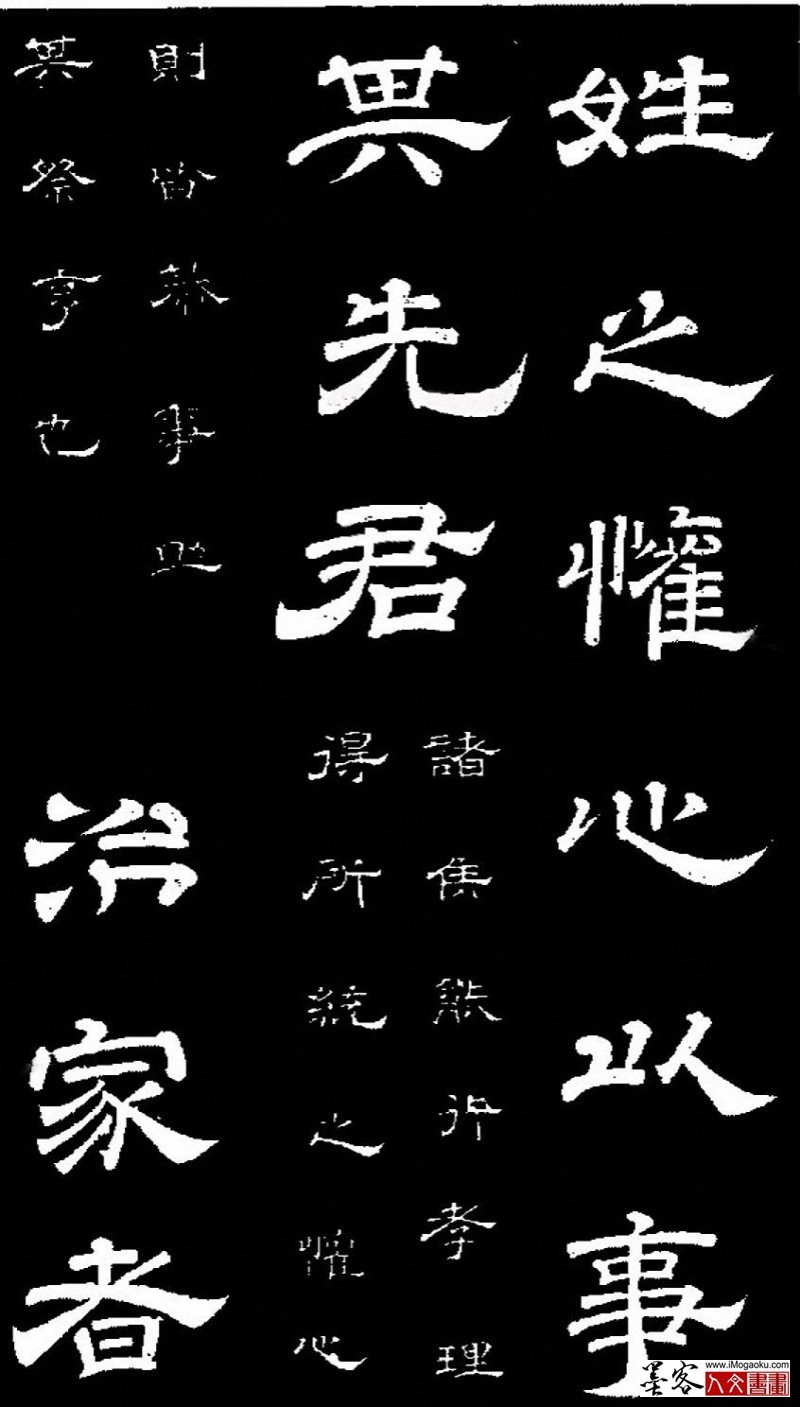 姓之懽心以事
其先君
諸侯能行孝理
得所統之懽心
則皆恭事助
其祭亨也
治家者
墨客
www.iMogaoku.com
人文書畫